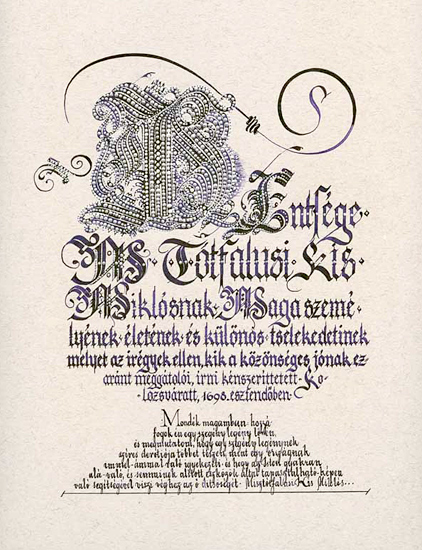 M
S
Entsége·
MS· Tótfalusi·Kis·
Miklósnak·Maga szemé=
lyének·életének·és különös·tselekedetinek
melyet az irégyek ellen, kik a közönséges jónak ez
aránt meggátolói, irni kénszerittetett·Ko-
-lozsváratt, 1698. esztendőben·
Mondék magamban: hozzá
fogok én egy szegény legény lévén,
és megmutatom, hogy egy szegény legénynek
szives devotiója többet tészen, mint egy országnak
immel-ámmal való igyekezeti – és hogy az Isten gyakran
alá-való, és semminek alított eszközök által tapasztalható-képen
való segitségével viszi véghez az ő ditsőségét· Misztótfalusi Kis Miklós...